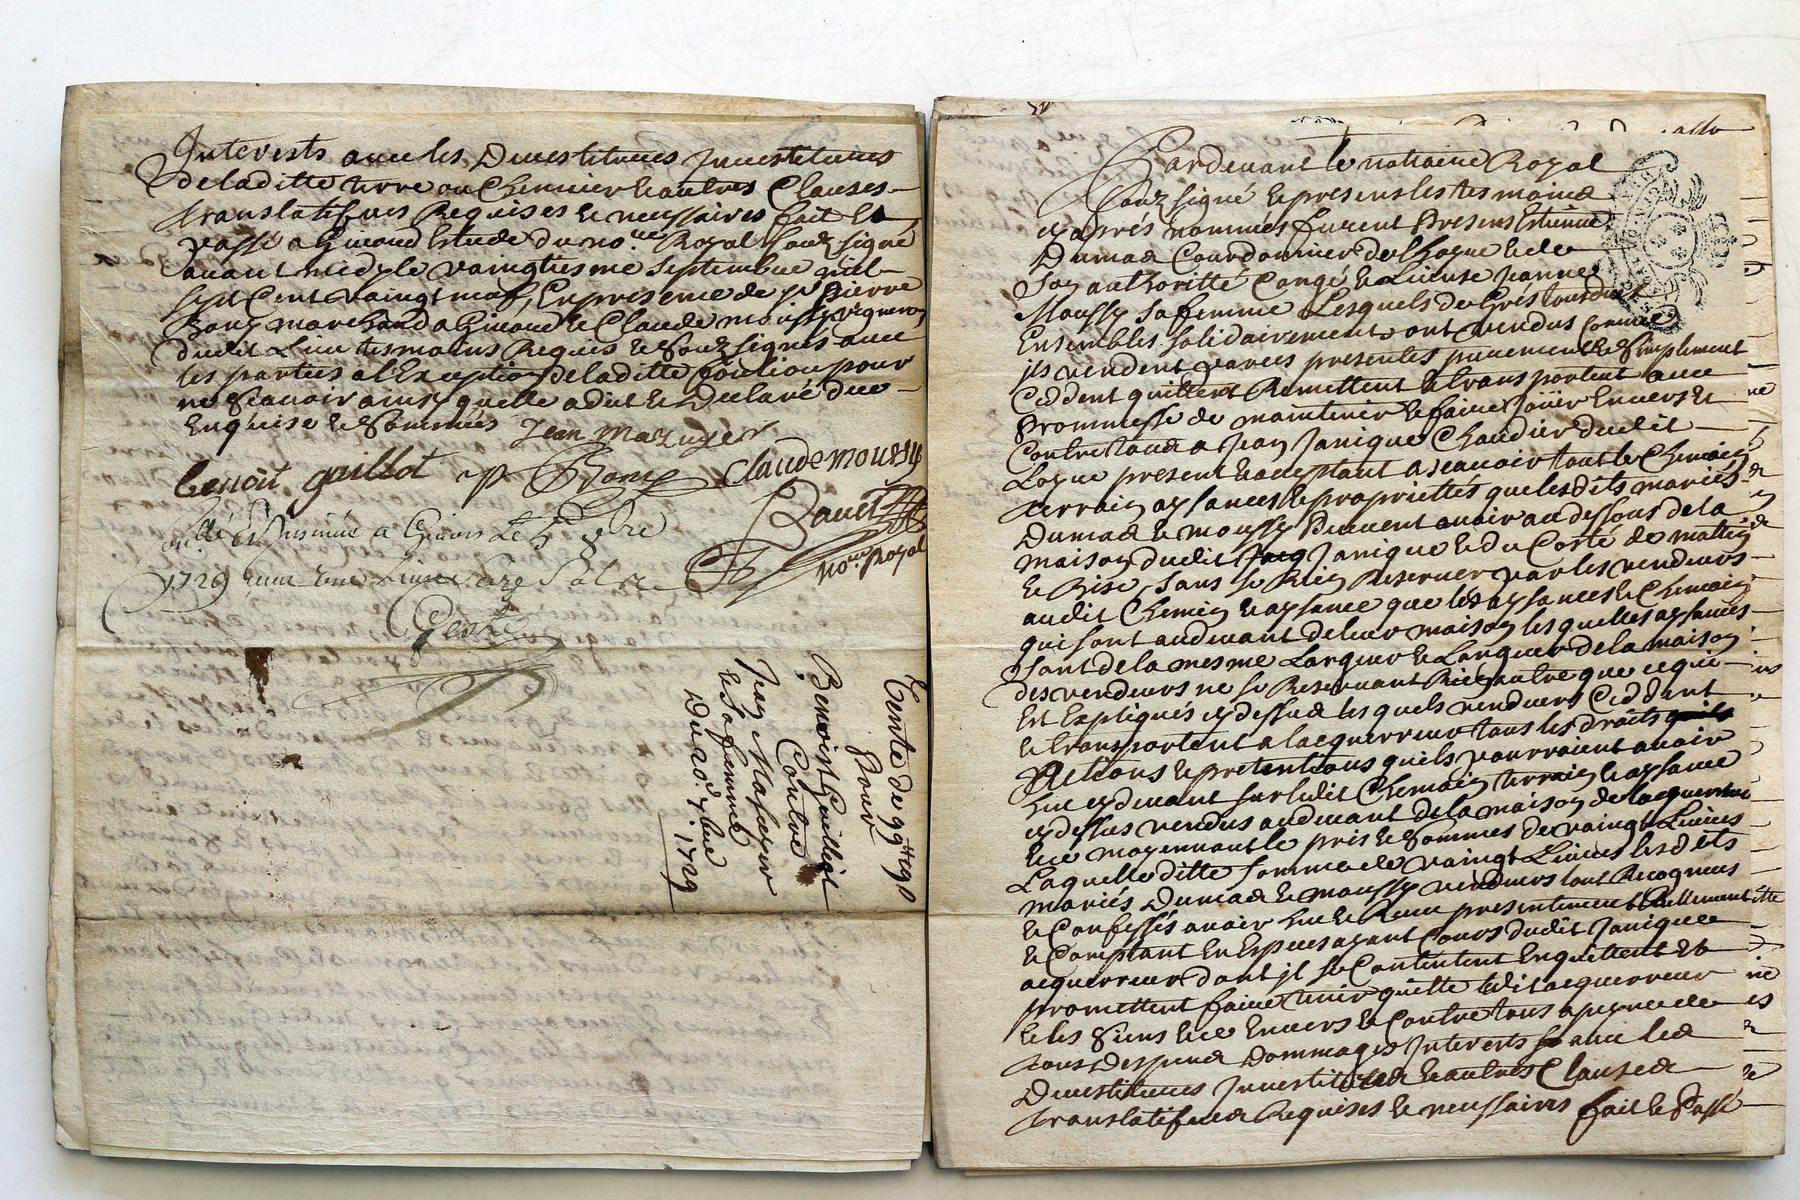 Interests avec les Devestitures Jnvestitures
de laditte terre ou Chenevier & autres Clauses
translatifves Requises & necessaires fait Et
passé a Givord Estude du no.re Royal Souz signé
avant midy le vaingtiesme septembre mil
sept Cent vaingt neuf, En presence de sr pierre
marchand a Givord & Claude moussy vigneron
dudit Lieu tesmoins Requis & Souz signés avec
les parties a l'Exception de laditte pour
ne scavoir ainsy quelle a dit & Declaré de ce
Enquise & Sommés
Jean mazuyer
benoit guillot
Claude moussy
no.re Royal
& Insinué a Givors Le 5
1729
Vente de 99# 19s
Pour
Benoist Guillot
Contre
Jean Masuyer
& Sa femme
Du 20.e 7.bre
1729
Pardevant le nottaire Royal
Souz signé & presens les tesmoins
cy aprés nommés furent Presens Estienne
Dumas Courdonnier de & de
Son authorité Congé & Licence Jeanne
Moussy Sa femme Lesquels de Grés tous deux
Ensembles Solidairement ont vendus comme
jls vendent par ces presentes purement & Simplement
Ceddent quittent Remettent & transportent avec
Prommesse de maintenir & faire joüir Envers Et
Contre tous a Jean Janique Chaudier dudit
present & aceptant a scavoir tout le Chemain
terrain aysances & proprietés que lesdits mariés
Dumas & moussy Peuvent avoir au dessous de la
maison dudit Janique & du Costé de mattin
& Bise, Sans se Rien Reserver par les vendeurs
audit Chemin & aysance que les aysances & Chemain
qui sont audevant de leur maison lesquelles aysances
sont de la mesme Largeur & Longueur de la maison
des vendeurs ne se Reservant Rien autre que ce qui
Est Expliqués cy dessus lesquels vendeurs Ceddent
& transportent a lacquerreur tous les droits
Actions & pretentions quils pourroient avoir
Eue cy devant sur ledit Chemain terrain & aysance
cy dessus vendus audevant de la maison de lacquerreur
& ce moyennant le pris & Sommes de vaingt Livres
Laquelle ditte somme de vaingt Livres lesdits
mariés Dumas & moussy vendeurs tout Recognus
& Confessés avoir Eue & Receu presentement & Reellement
& Comptant En Especes ayant Cours dudit Janique
acquerreur dont jl se Contentent Enquittent Et
promettent faire tenir quitte ledit acquerreur
& les Siens & ce Envers & Contre tous a peyne de
tous despens Dommages Jnterests avec les
Devestitures Jnvestitures & autres Clauses
translatifves Requises & necessaires fait & Passé